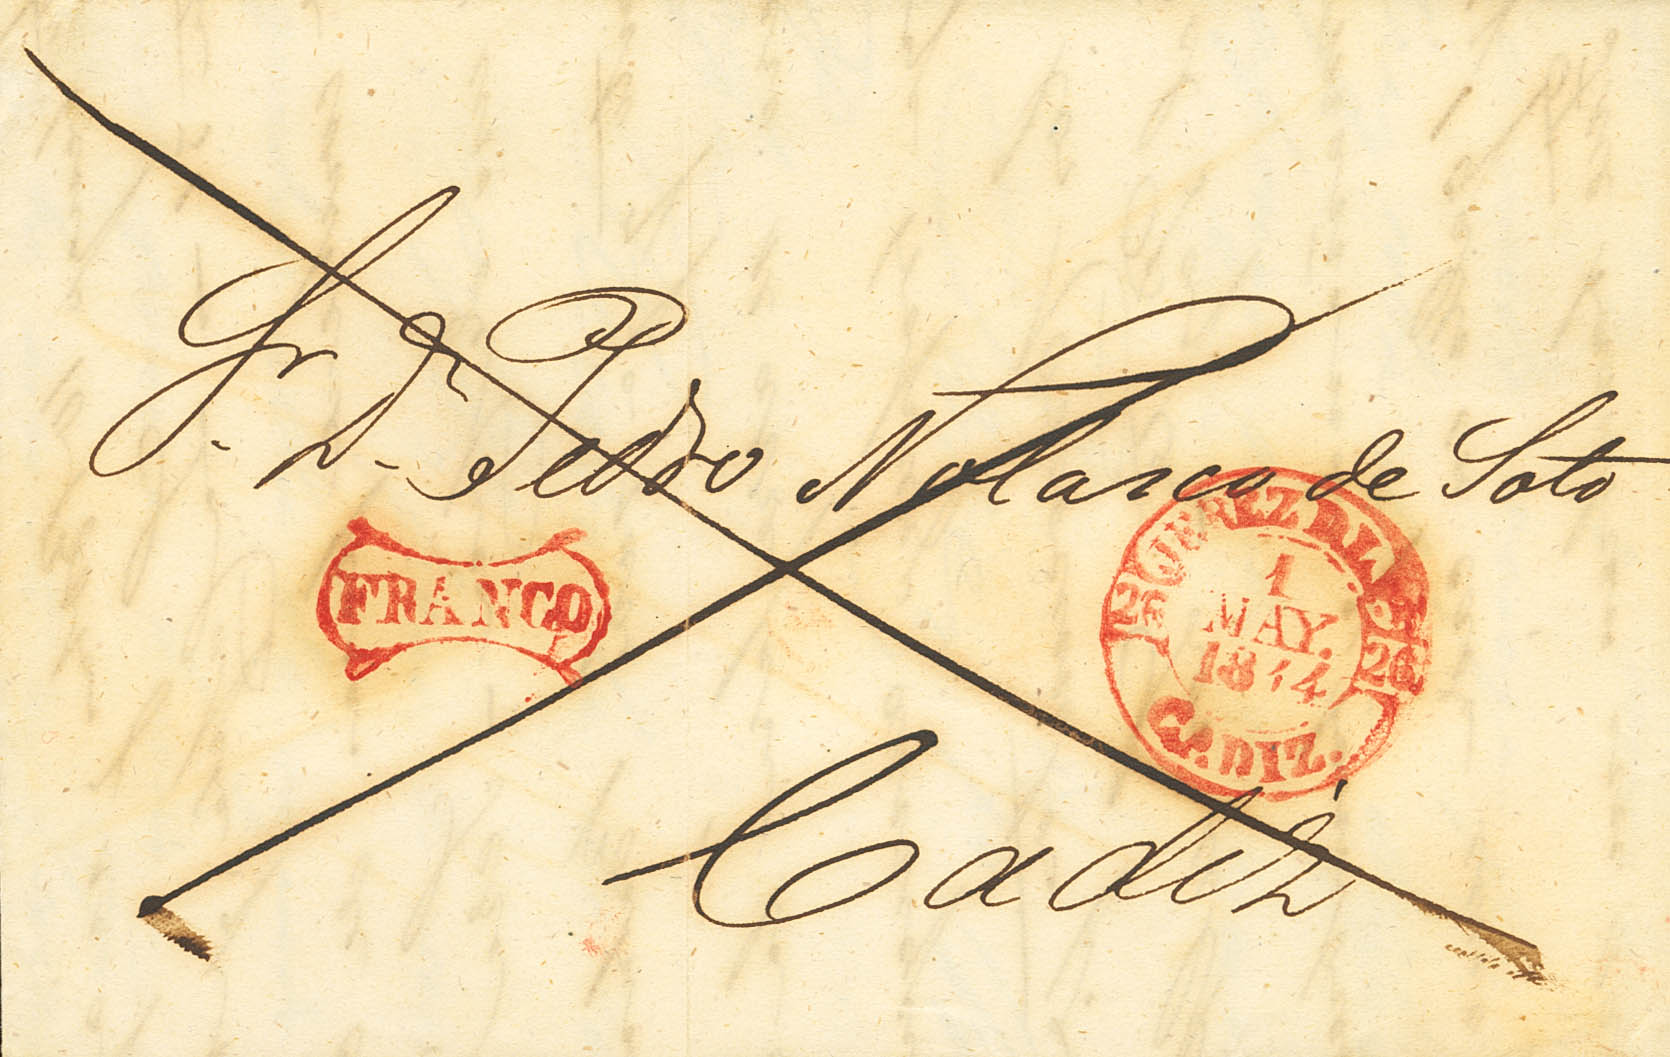 Sr. Dn. Pedro Nolasco de Soto
FRANCO
JEREZ DE LA F.
26 26
1
MAY.
1844
CADIZ.
Cadiz